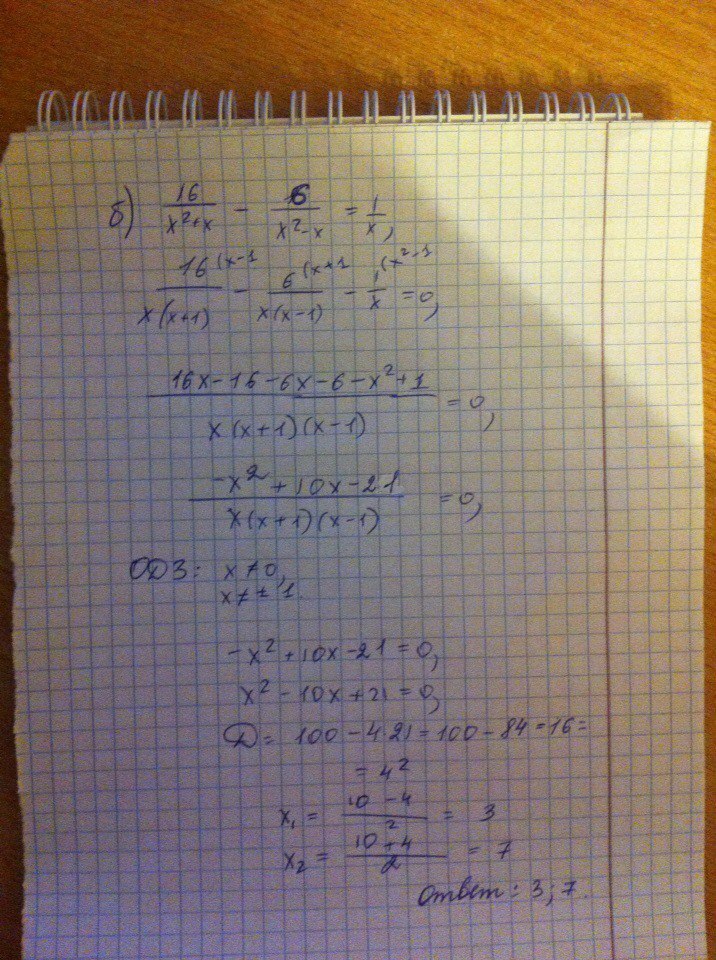 б) 16/(x²+x) - 6/(x²-x) = 1/x,
16(x-1/(x(x+1)) - 6(x+1/(x(x-1)) - 1(x²-1/x = 0,
(16x-16-6x-6-x²+1)/(x(x+1)(x-1)) = 0,
(-x²+10x-21)/(x(x+1)(x-1)) = 0,
ОДЗ: x≠0,
x≠±1
-x²+10x-21=0,
x²-10x+21=0,
D= 100-4·21=100-84=16=
=4²
x₁ = (10-4)/2 = 3
x₂ = (10+4)/2 = 7
Ответ: 3; 7.